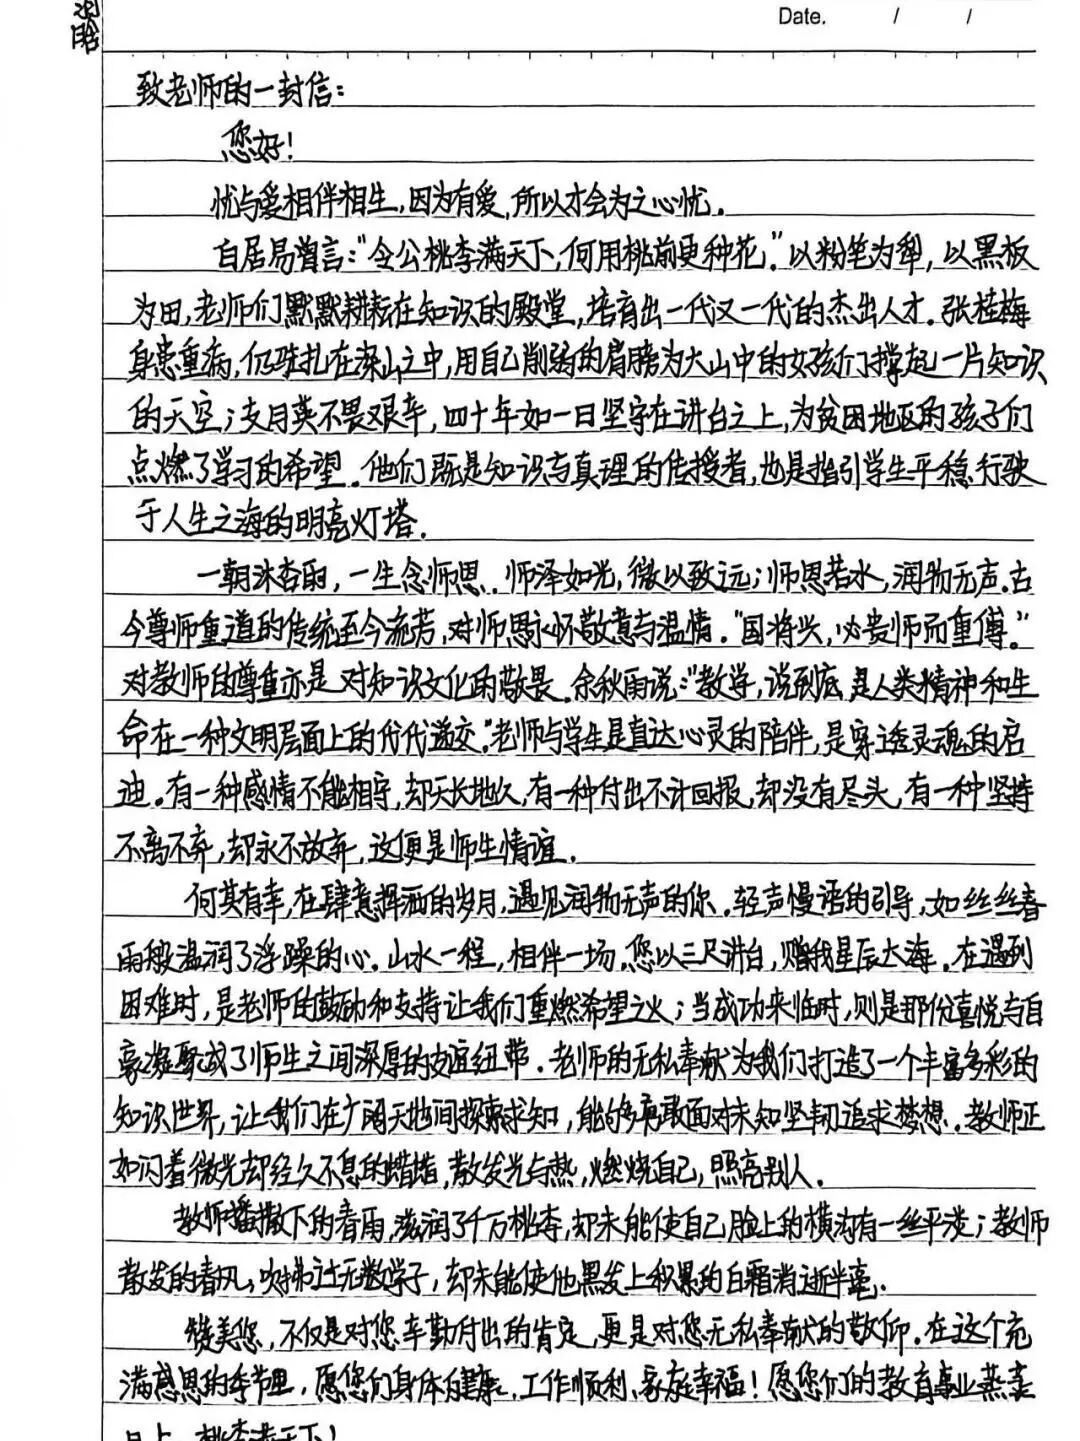 Date. / /
致老师的一封信：
您好！
忧与爱相伴相生，因为有爱，所以才会为之心忧．
白居易曾言：“令公桃李满天下，何用桃前更种花．”以粉笔为犁，以黑板
为田，老师们默默耕耘在知识的殿堂，培育出一代又一代的杰出人才．张桂梅
身患重病，仍驻扎在深山之中，用自己削弱的肩膀为大山中的女孩们撑起一片知识
的天空；支月英不畏艰辛，四十年如一日坚守在讲台之上，为贫困地区的孩子们
点燃了学习的希望．他们既是知识与真理的传授者，也是指引学生平稳行驶
于人生之海的明亮灯塔．
一朝沐杏雨，一生念师恩．师泽如光，微以致远；师恩若水，润物无声．古
今尊师重道的传统至今流芳，对师恩永怀敬意与温情．“国将兴，必贵师而重傅．”
对教师的尊重亦是对知识文化的敬畏．余秋雨说：“教学，说到底，是人类精神和生
命在一种文明层面上的代代递交．”老师与学生是直达心灵的陪伴，是穿透灵魂的启
迪．有一种感情不能相守，却天长地久，有一种付出不计回报，却没有尽头，有一种坚持
不离不弃，却永不放弃，这便是师生情谊．
何其有幸，在肆意挥洒的岁月，遇见润物无声的你．轻声慢语的引导，如丝丝春
雨般温润了浮躁的心．山水一程，相伴一场．您以三尺讲台，赠我星辰大海．在遇到
困难时，是老师的鼓励和支持让我们重燃希望之火；当成功来临时，则是那份喜悦与自
豪凝聚成了师生之间深厚的友谊纽带．老师的无私奉献为我们打造了一个丰富多彩的
知识世界，让我们在广阔天地间探索求知，能够勇敢面对未知坚韧追求梦想．教师正
如闪着微光却经久不息的蜡烛，散发光与热，燃烧自己，照亮别人．
教师播撒下的春雨，滋润了千万桃李，却未能使自己脸上的横沟有一丝平淡；教师
散发的春风，吹拂过无数学子，却未能使他黑发上积累的白霜消逝半毫．
赞美您，不仅是对您辛勤付出的肯定，更是对您无私奉献的敬仰．在这个充
满感恩的季节里，愿您们身体健康，工作顺利，家庭幸福！愿您们的教育事业蒸蒸
日上，桃李满天下！